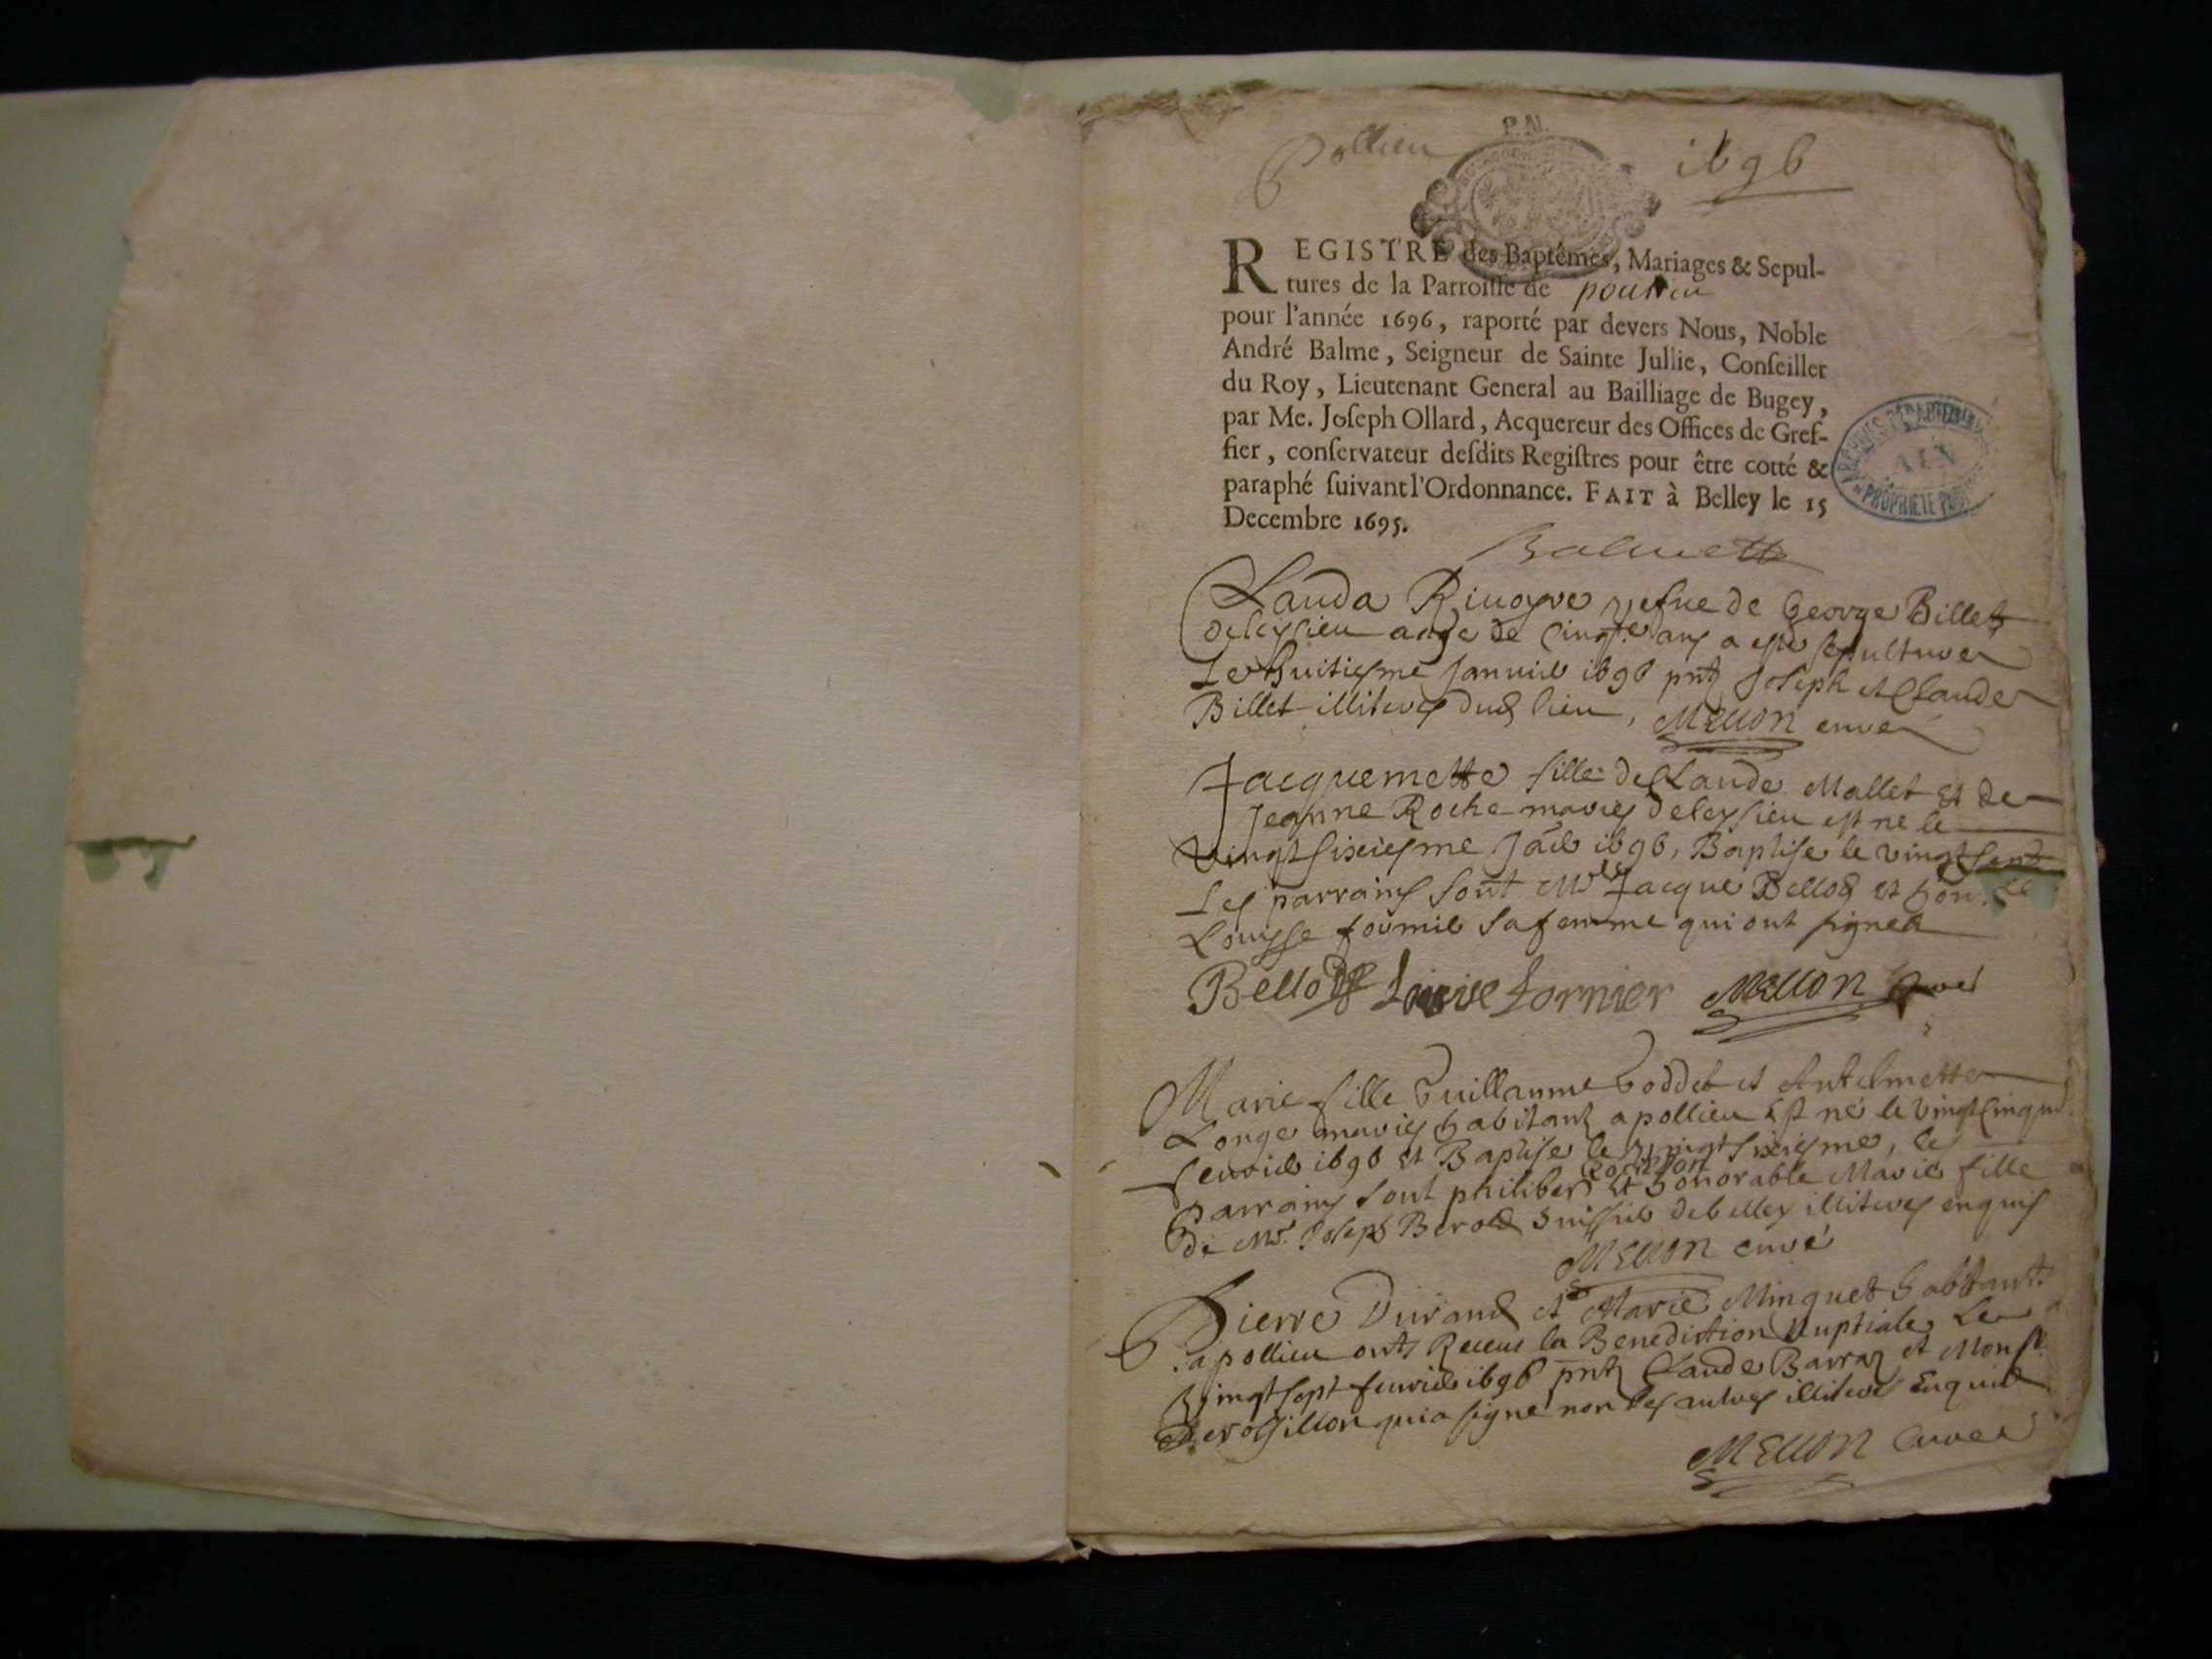 Pollieu
1696
REGISTRE des Baptêmes, Mariages & Sepul-
tures de la Parroisse de
pour l'année 1696, raporté par devers Nous, Noble
André Balme, Seigneur de Sainte Jullie, Conseiller
du Roy, Lieutenant General au Bailliage de Bugey,
par Me. Joseph Ollard, Acquereur des Offices de Gref-
fier, conservateur desdits Registres pour être cotté &
paraphé suivant l'Ordonnance. FAIT à Belley le 15
Decembre 1695.
ARCHIVES DÉPARTEMENTALES
AIN
PROPRIETE PUB
Clauda vefue de George Billet
aage de ans a esté sepulturer
Le huitiesme Januier 1696 pnts Joseph et Claude
Billet illiteres dud lieu, Mellon curé
Jacquemette fille de Claude Mallet et de
Jeanne Roche maries de leyssieu est ne le
Vingt sixiesme 1696, Baptise le vingt sept
Les parrains sont Jacque Bellod et
Louysse fornier sa femme qui ont signer
Bellod Louise fornier Mellon Curé
Marie fille Guillaume Goddet et Antelmette
Longe maries habitant a pollieu est né le vingt cinqu
feurier 1696 et Baptise le vingt sixiesme, les
parrains sont philibert et honorable Marie fille
de Mr. Joseph de belley illiteres enquis
Mellon curé
Pierre Durand et Marie Minguet habitants
a pollieu onts Receu la Benediction Nuptiale Le
Vingt sept feurier 1696 pnts Claude Barraz et
Derossillon qui a signe non les autres illiteres Enquis
Mellon Curé